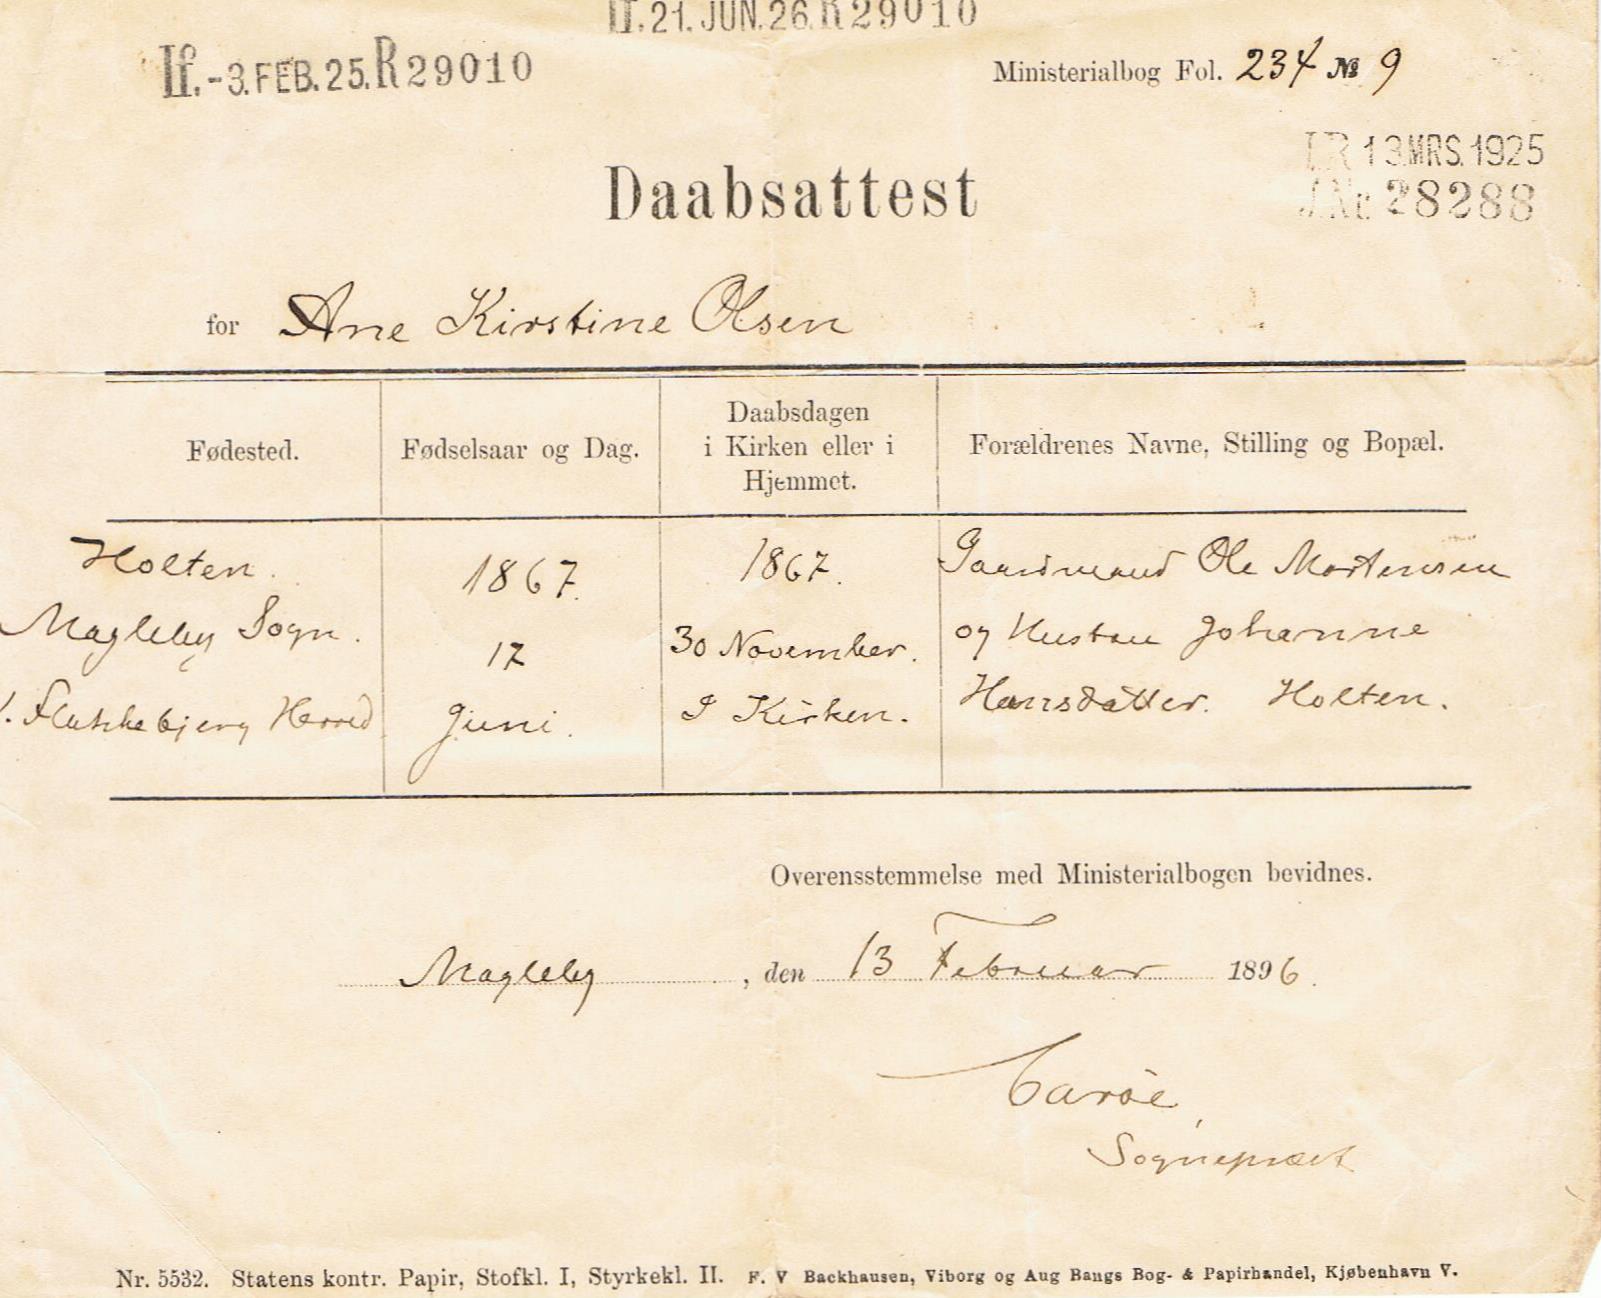 If. 21. JUN. 26. R 29010
If. -3. FEB. 25. R 29010
Ministerialbog Fol. 234 № 9
I.R 13 MRS. 1925
J.Nr. 28288
Daabsattest
for Ane Kirstine Olsen
Fødested.
Fødselsaar og Dag.
Daabsdagen
i Kirken eller i
Hjemmet.
Forældrenes Navne, Stilling og Bopæl.
Holten.
Magleby Sogn.
V. Flakkebjerg Herred
1867.
17
Juni.
1867.
30 November.
I Kirken.
Gaardmand Ole Mortensen
og Hustru Johanne
Hansdatter. Holten.
Overensstemmelse med Ministerialbogen bevidnes.
Magleby, den 13 Februar 1896.
Carøe,
Sognepræst
Nr. 5532. Statens kontr. Papir, Stofkl. I, Styrkekl. II. F. V Backhausen, Viborg og Aug Bangs Bog- & Papirhandel, Kjøbenhavn V.